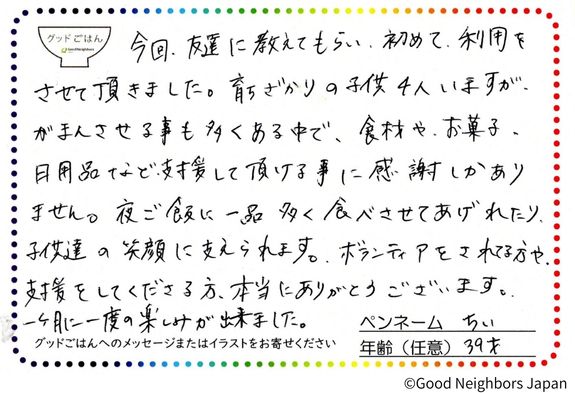 グッドごはん
Good Neighbors
今回、友達に教えてもらい、初めて、利用を
させて頂きました。育ちざかりの子供4人いますが、
がまんさせる事も多くある中で、食材や、お菓子、
日用品など、支援して頂ける事に感謝しかあり
ません。夜ご飯に一品多く食べさせてあげれたり、
子供達の笑顔に支えられます。ボランティアをされてる方や、
支援をしてくださる方、本当にありがとうございます。
一ヶ月に一度の楽しみが出来ました。
ペンネーム ちぃ
グッドごはんへのメッセージまたはイラストをお寄せください
年齢（任意） 39才
©Good Neighbors Japan